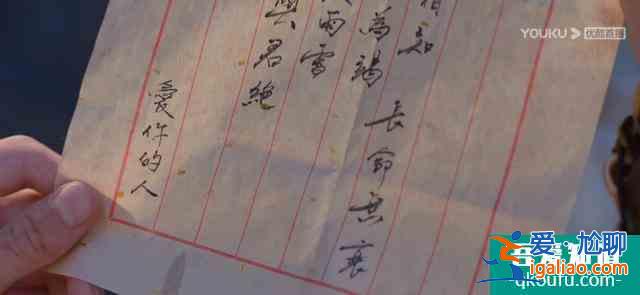 YOUKU 优酷独播
相知 長命無衰
為竭
雨雪
與君絕
愛你的人
爱尬聊